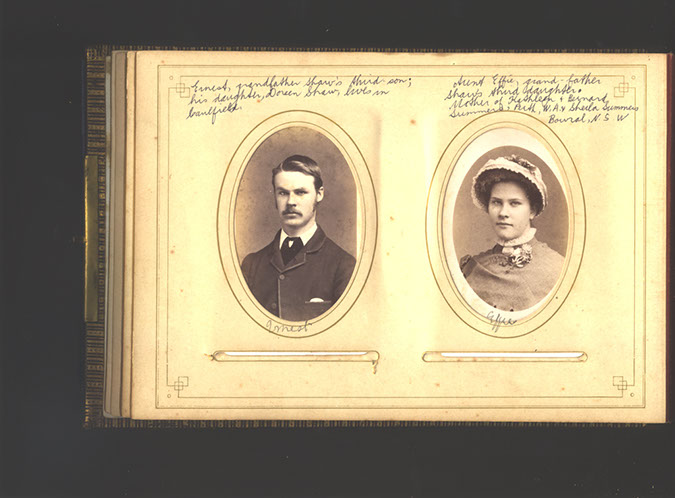 Ernest, grandfather Shaw's third son;
his daughter, Doreen Shaw, lives in
Caulfield.
Aunt Effie, grand-father
Shaw's third daughter.
Mother of Kathleen + Bernard
Summers, Perth, W.A. + Sheila Summers
Bowral, N S W
Ernest
Effie